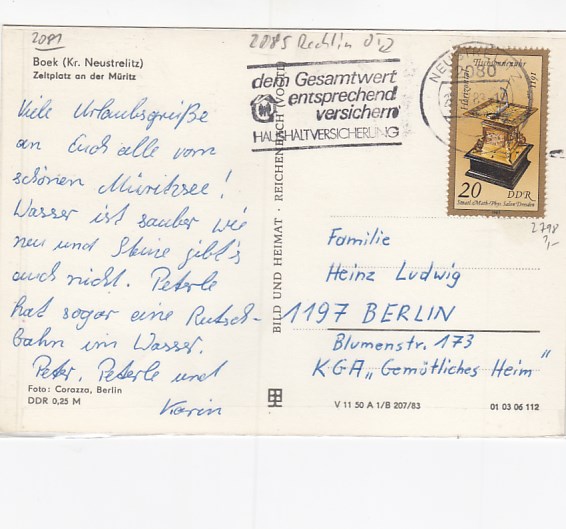 2081
2085 Rechlin
Boek (Kr. Neustrelitz)
Zeltplatz an der Müritz
Viele Urlaubsgrüße
an Euch alle vom
schönen Müritzsee!
Wasser ist sauber wie
neu und Steine gibt's
auch nicht. Peterle
hat sogar eine Rutsch-
bahn im Wasser.
Peter, Peterle und
Karin
Foto: Corazza, Berlin
DDR 0,25 M
BILD UND HEIMAT · REICHENBACH (VOGTL)
dem Gesamtwert
entsprechend
versichern
HAUSHALTVERSICHERUNG
2080
Tischsonnenuhr
1611
20 DDR
Staatl. Math.-Phys. Salon Dresden
2798
Familie
Heinz Ludwig
1197 BERLIN
Blumenstr. 173
KGA „Gemötliches Heim"
V 11 50 A 1/B 207/83
01 03 06 112